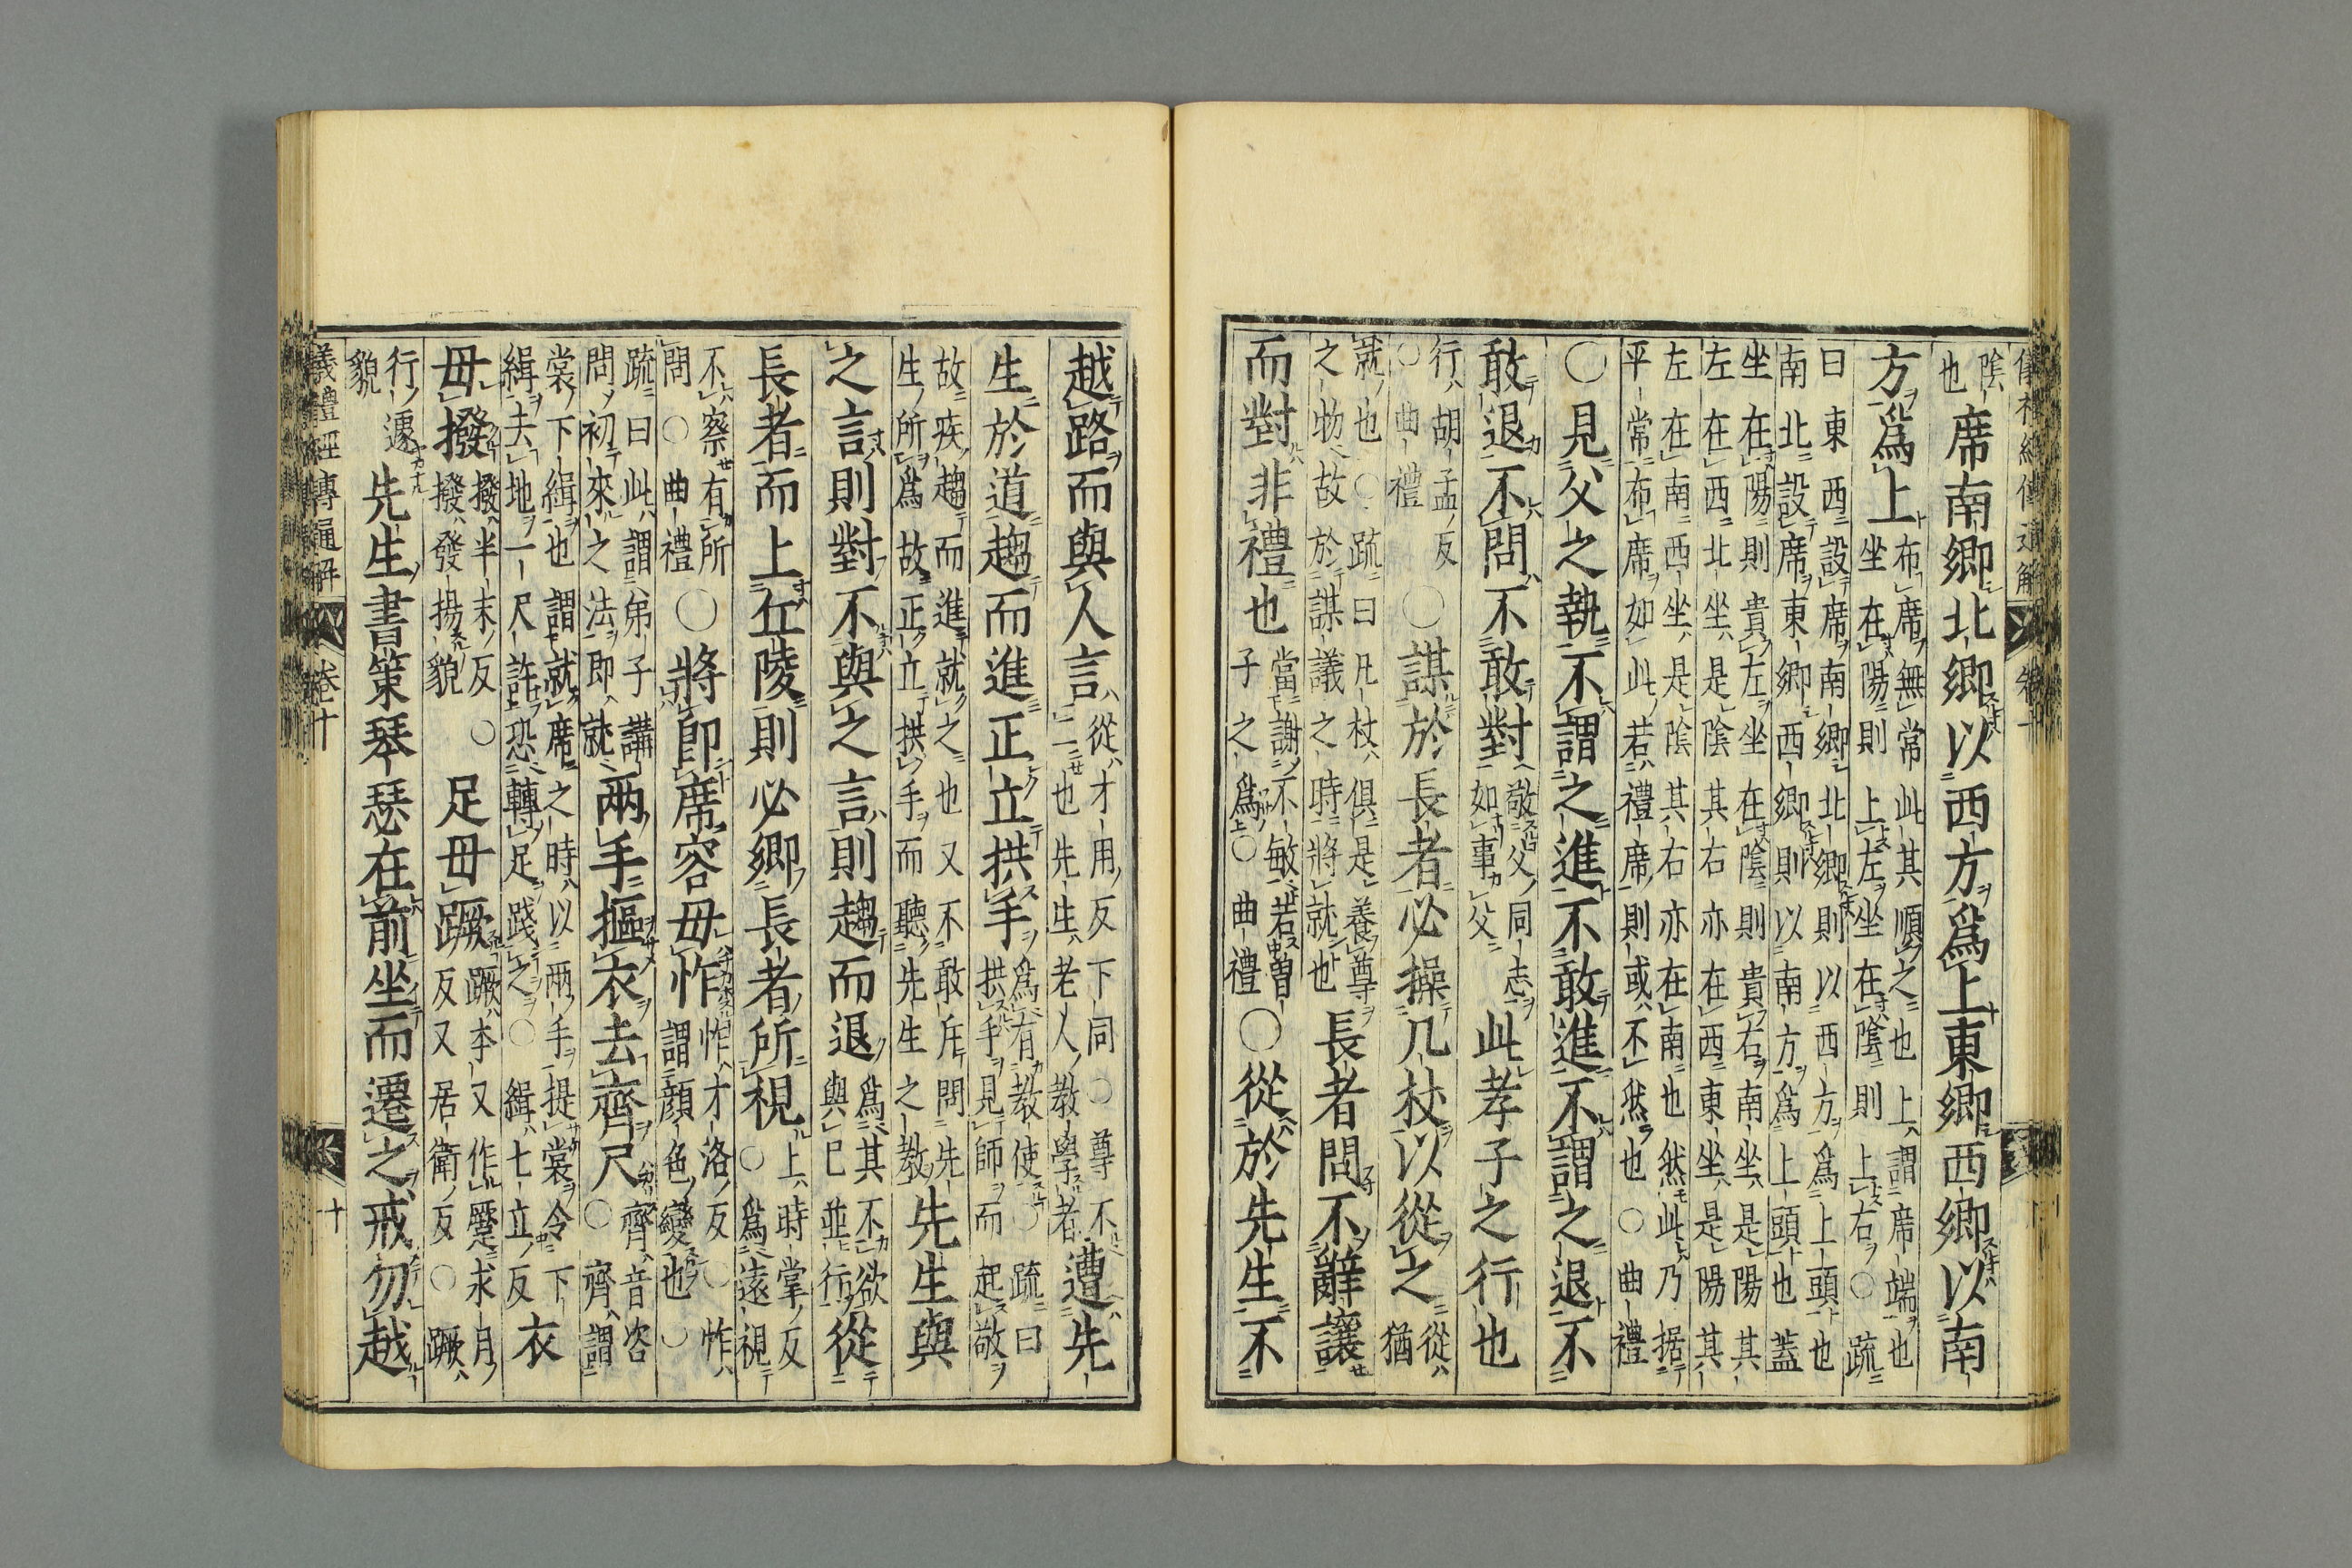 陰也席南鄉北鄉以西方爲上東鄉西鄉以南
方爲上布席無常此其順之也上謂席端也坐在陽則上左坐在陰則上右○疏
曰東西設席南鄉北鄉則以西方爲上頭也南北設席東鄉西鄉則以南方爲上頭也蓋
坐在陽則貴左坐在陰則貴右南坐是陽其左在西北坐是陰其右亦在西東坐是陽其
左在南西坐是陰其右亦在南也然此乃据平常布席如此若禮席則或不然也○曲禮
○見父之執不謂之進不敢進不謂之退不
敢退不問不敢對敬父同志如事父此孝子之行也
行胡孟反○曲禮○謀於長者必操几杖以從之從猶
就也○疏曰凡杖俱是養尊之物故於謀議之時將就也長者問不辭讓
而對非禮也當謝不敏若曾子之爲○曲禮○從於先生不
越路而與人言從才用反下同○尊不二也先生老人教學者遭先
生於道趨而進正立拱手爲有教使○疏曰拱手見師而起敬
故疾趨而進就之也又不敢斥問先生所爲故正立拱手而聽先生之教先生與
之言則對不與之言則趨而退爲其不欲與已並行從
長者而上丘陵則必鄉長者所視上時掌反○爲遠視
不察有所問○曲禮○將卽席容毋怍怍才洛反謂顏色變也○怍
疏曰此謂弟子講問初來之法卽就兩手摳衣去齊尺齊音咨○齊謂
裳下緝也謂就席之時以兩手提裳令下緝去地一尺許恐轉足踐之○緝七立反衣
毋撥撥半末反○撥發揚貌足毋蹶蹶本又作蹷求月反又居衛反○蹶
行遽貌先生書策琴瑟在前坐而遷之戒勿越
儀禮經傳通解
卷十
十